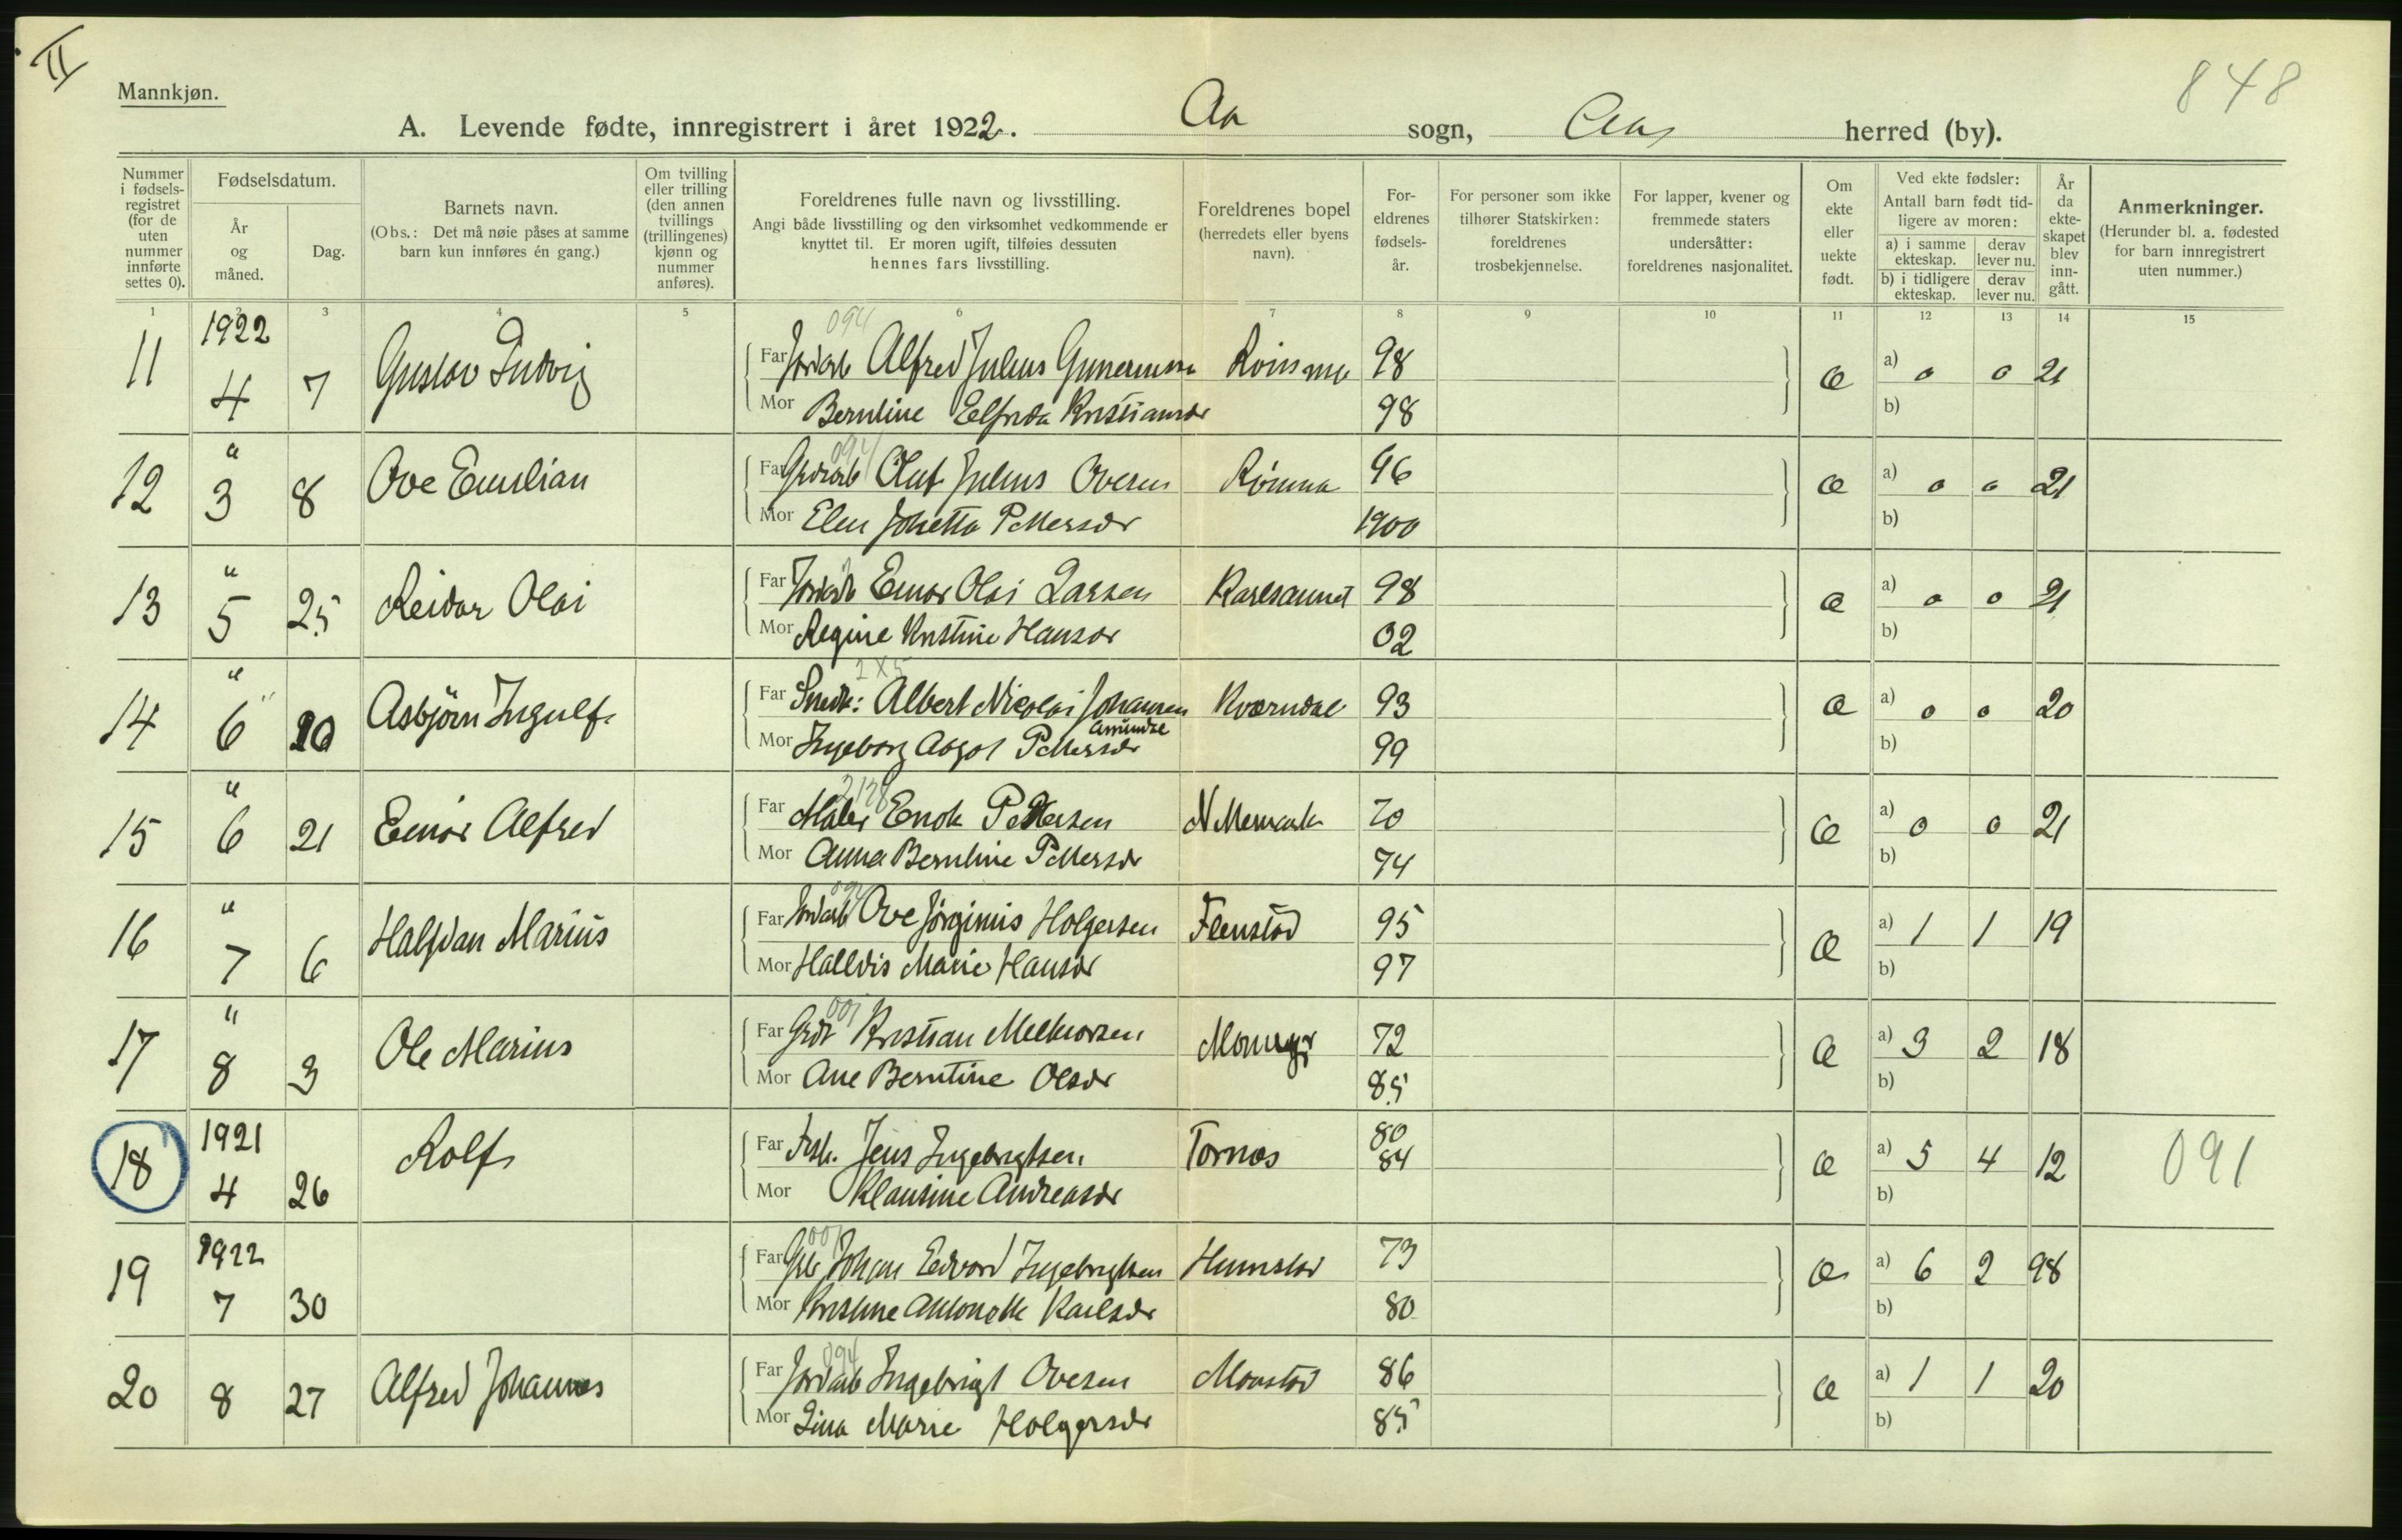 II
848
Mannkjøn.
A. Levende fødte, innregistrert i året 1922. Aa sogn, Aa herred (by).
Nummer i fødsels-registret (for de uten nummer innførte settes 0).
Fødselsdatum.
År og måned.
Dag.
Barnets navn.
(Obs.: Det må nøie påses at samme barn kun innføres én gang.)
Om tvilling eller trilling (den annen tvillings (trillingenes) kjønn og nummer anføres).
Foreldrenes fulle navn og livsstilling.
Angi både livsstilling og den virksomhet vedkommende er knyttet til. Er moren ugift, tilføies dessuten hennes fars livsstilling.
Foreldrenes bopel (herredets eller byens navn).
For-eldrenes fødsels-år.
For personer som ikke tilhører Statskirken: foreldrenes trosbekjennelse.
For lapper, kvener og fremmede staters undersåtter: foreldrenes nasjonalitet.
Om ekte eller uekte født.
Ved ekte fødsler: Antall barn født tid-ligere av moren:
a) i samme ekteskap. derav lever nu.
b) i tidligere ekteskap. derav lever nu.
År da ekte-skapet blev inn-gått.
Anmerkninger.
(Herunder bl. a. fødested for barn innregistrert uten nummer.)
1 2 3 4 5 6 7 8 9 10 11 12 13 14 15
11 1922 4 7 Gustav Ludvig
094
Far Jordarb Alfred Julius 98 Æ a) 0 0 21
Mor Berntine Elfrida Kristiansdr 98 b)
12 " 3 8 Ove Emilian
094
Far Olaf Julius Ovesen 96 Æ a) 0 0 21
Mor Elen Johetta Pettersdr 1900 b)
13 " 5 25 Reidar Olai
Far Jordarb Einar Olai Larsen 98 Æ a) 0 0 21
Mor Regine Kristine Hansdr 02 b)
14 " 6 20 Asbjörn Ingulf
2x5
Far Smed: Albert Nicolai Johansen Kværndal 93 Æ a) 0 0 20
Amundsd
Mor Ingeborg Pettersdr 99 b)
15 " 6 21 Einar Alfred
Far Maler Enok Pettersen 70 Æ a) 0 0 21
Mor Anna Berntine Pettersdr 74 b)
16 " 7 6 Halfdan Marius
094
Far Jordarb Ove Jörginius Holgersen Flenstad 95 Æ a) 1 1 19
Mor Halldis Marie Hansdr 97 b)
17 " 8 3 Ole Marius
001
Far Grdr Kristian Melkiorsen 72 Æ a) 3 2 18
Mor Ane Berntine Olsdr 85 b)
18 1921 4 26 Rolf
Far Fisk. Jens Ingebrigtsen Tornes 80 84 Æ a) 5 4 12 091
Mor Klausine Andreasdr b)
19 1922 7 30
001
Far Johan Edvard Ingebrigtsen Humstad 73 Æ a) 6 2 98
Mor Kristine Antonette Karlsdr 80 b)
20 8 27 Alfred Johannes
094
Far Jordarb Ingebrigt Ovesen Moastad 86 Æ a) 1 1 20
Mor Lina Marie Holgersdr 85 b)